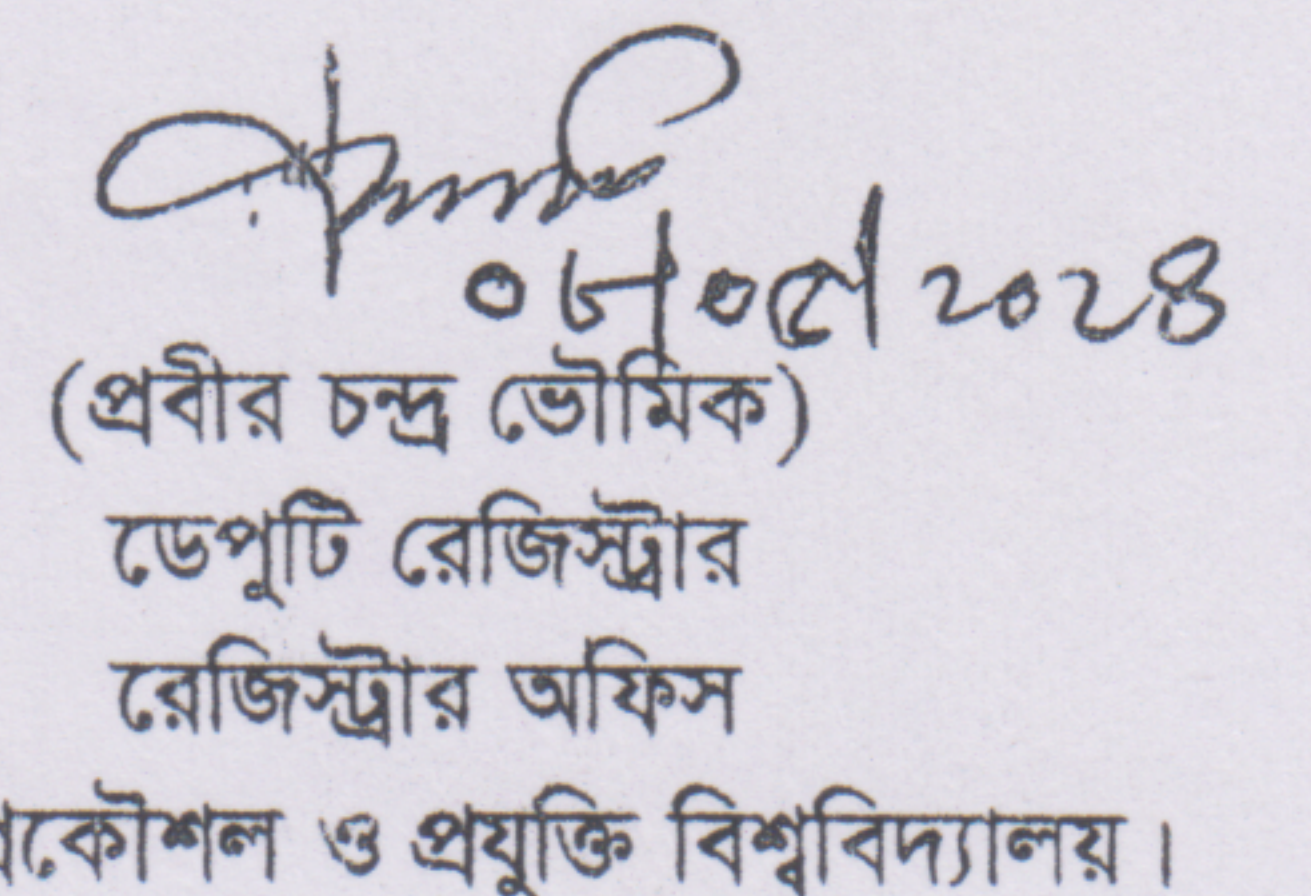 ২০২৪
(প্রবীর চন্দ্র ভৌমিক)
ডেপুটি রেজিস্ট্রার
রেজিস্ট্রার অফিস
ও প্রযুক্তি বিশ্ববিদ্যালয়।